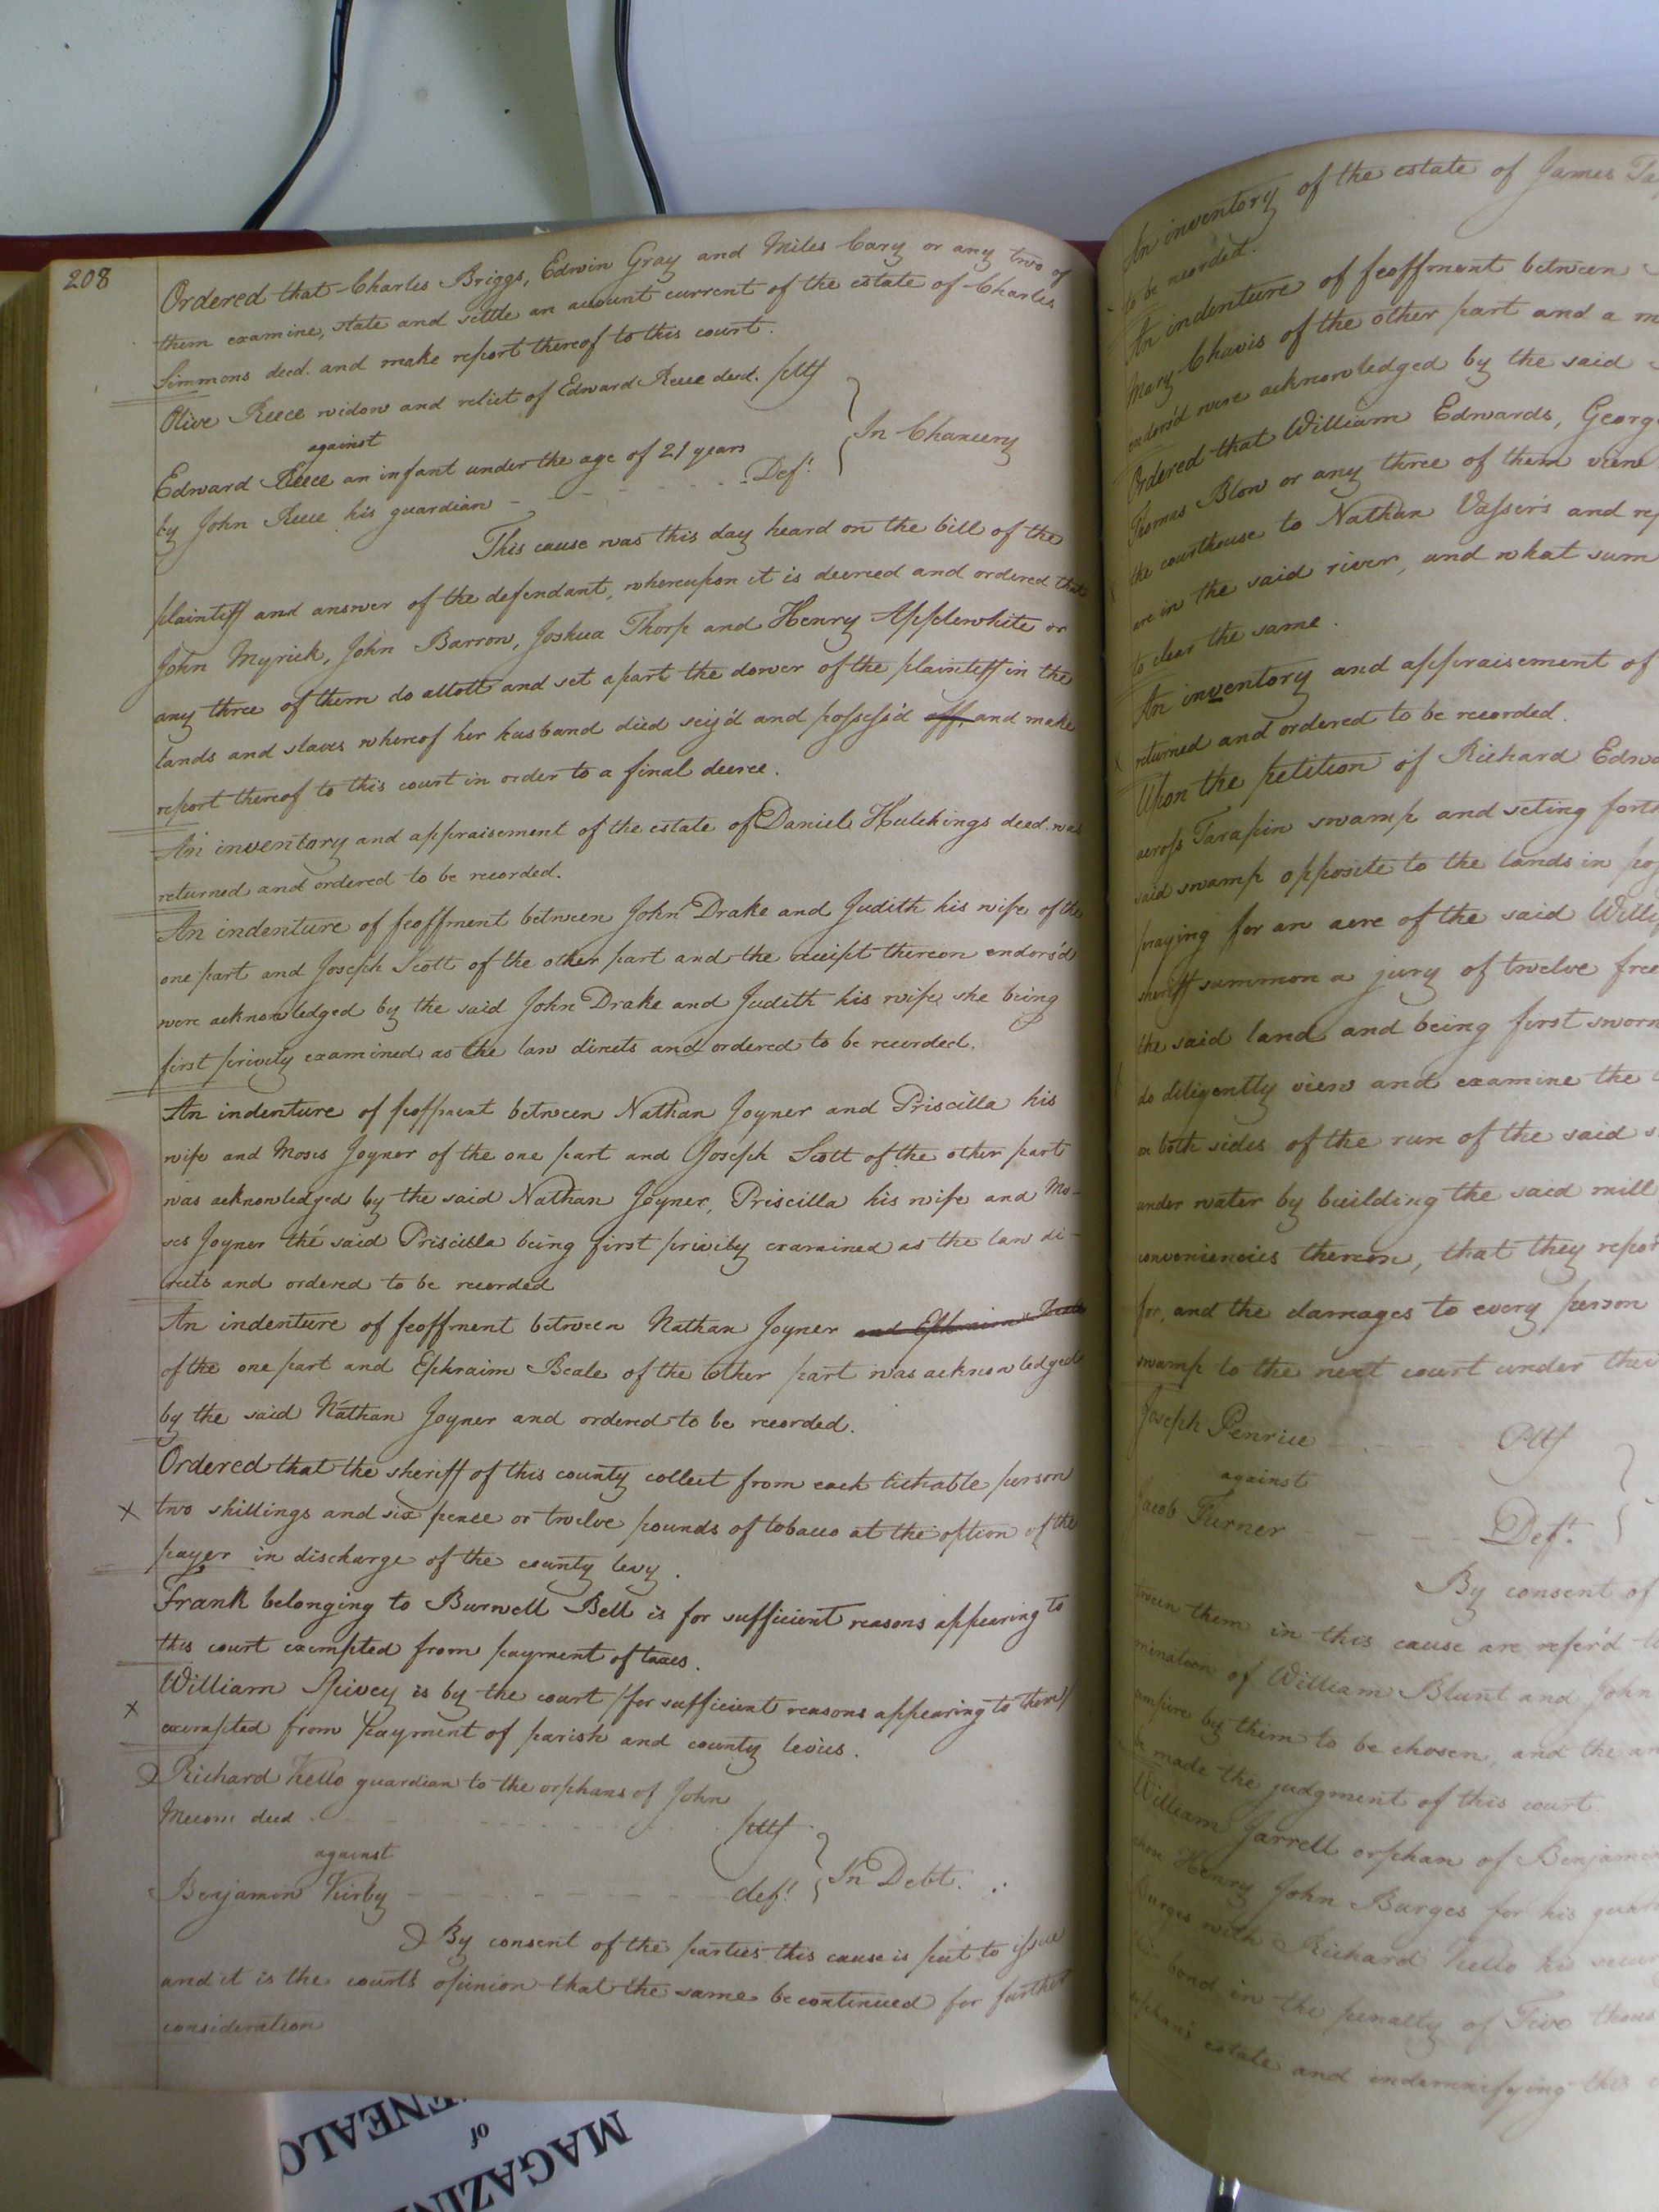 208
Ordered that Charles Briggs, Edwin Gray and Miles Cary or any two of
them examine, state and settle an account current of the estate of Charles
Simmons decd. and make report thereof to this court.
Olive Reece widow and relict of Edward Reece decd. pltf
against
In Chancery
Edward Reece an infant under the age of 21 years
by John Reece his guardian - - - - - - - - Deft.
This cause was this day heard on the bill of the
plaintiff and answer of the defendant, whereupon it is decreed and ordered that
John Myrick, John Barrow, Joshua Thorp and Henry Applewhite or
any three of them do allott and set apart the dower of the plaintiff in the
lands and slaves whereof her husband died seiz'd and possess'd off and make
report thereof to this court in order to a final decree.
An inventory and appraisement of the estate of Daniel Hutchings decd. was
returned and ordered to be recorded.
An indenture of feoffment between John Drake and Judith his wife of the
one part and Joseph Scott of the other part and the receipt thereon endors'd
were acknowledged by the said John Drake and Judith his wife she being
first privily examined as the law directs and ordered to be recorded.
An indenture of feoffment between Nathan Joyner and Priscilla his
wife and Moses Joyner of the one part and Joseph Scott of the other part
was acknowledged by the said Nathan Joyner, Priscilla his wife and Mo-
ses Joyner the said Priscilla being first privily examined as the law di-
rects and ordered to be recorded
An indenture of feoffment between Nathan Joyner and Ephraim Beale
of the one part and Ephraim Beale of the other part was acknowledged
by the said Nathan Joyner and ordered to be recorded.
Ordered that the sheriff of this county collect from each tithable person
x two shillings and six pence or twelve pounds of tobacco at the option of the
payer in discharge of the county levy.
Frank belonging to Burwell Bell is for sufficient reasons appearing to
this court exempted from payment of taxes.
William Spivey is by the court /for sufficient reasons appearing to them/
x exempted from payment of parish and county levies.
Richard Kello guardian to the orphans of John
Meeom decd - - - - - - - - pltf
against
In Debt.
Benjamin Kirby - - - - - - - - deft.
By consent of the parties this cause is put to issue
and it is the courts opinion that the same be continued for further
consideration
An inventory of the estate of James
to be recorded.
An indenture of feoffment between
Mary Chavis of the other part and a
endors'd were acknowledged by the said
Ordered that William Edwards,
Thomas Blow or any three of them view
the courthouse to Nathan Vasser's and
are in the said river, and what sum
to clear the same.
An inventory and appraisement of
returned and ordered to be recorded.
Upon the petition of Richard
across Tarapin swamp and seting
said swamp opposite to the lands in
praying for an acre of the said
sheriff summon a jury of twelve
the said land and being first sworn
do diligently view and examine the
on both sides of the run of the said
under water by building the said mill
conveniencies thereon, that they
for, and the damages to every person
swamp to the next court under
Joseph Penrice - - - - Pltf
against
Jacob Turner - - Deft.
By consent of
tween them in this cause are refer'd
mination of William Blunt and John
umpire by them to be chosen, and the
be made the judgment of this court.
William Jarrell orphan of
chose Henry John Burges for his
Burges with Richard Kello his
bond in the penalty of Five
orphan's estate and indemnifying this
MAGAZIN
of
ENEALO